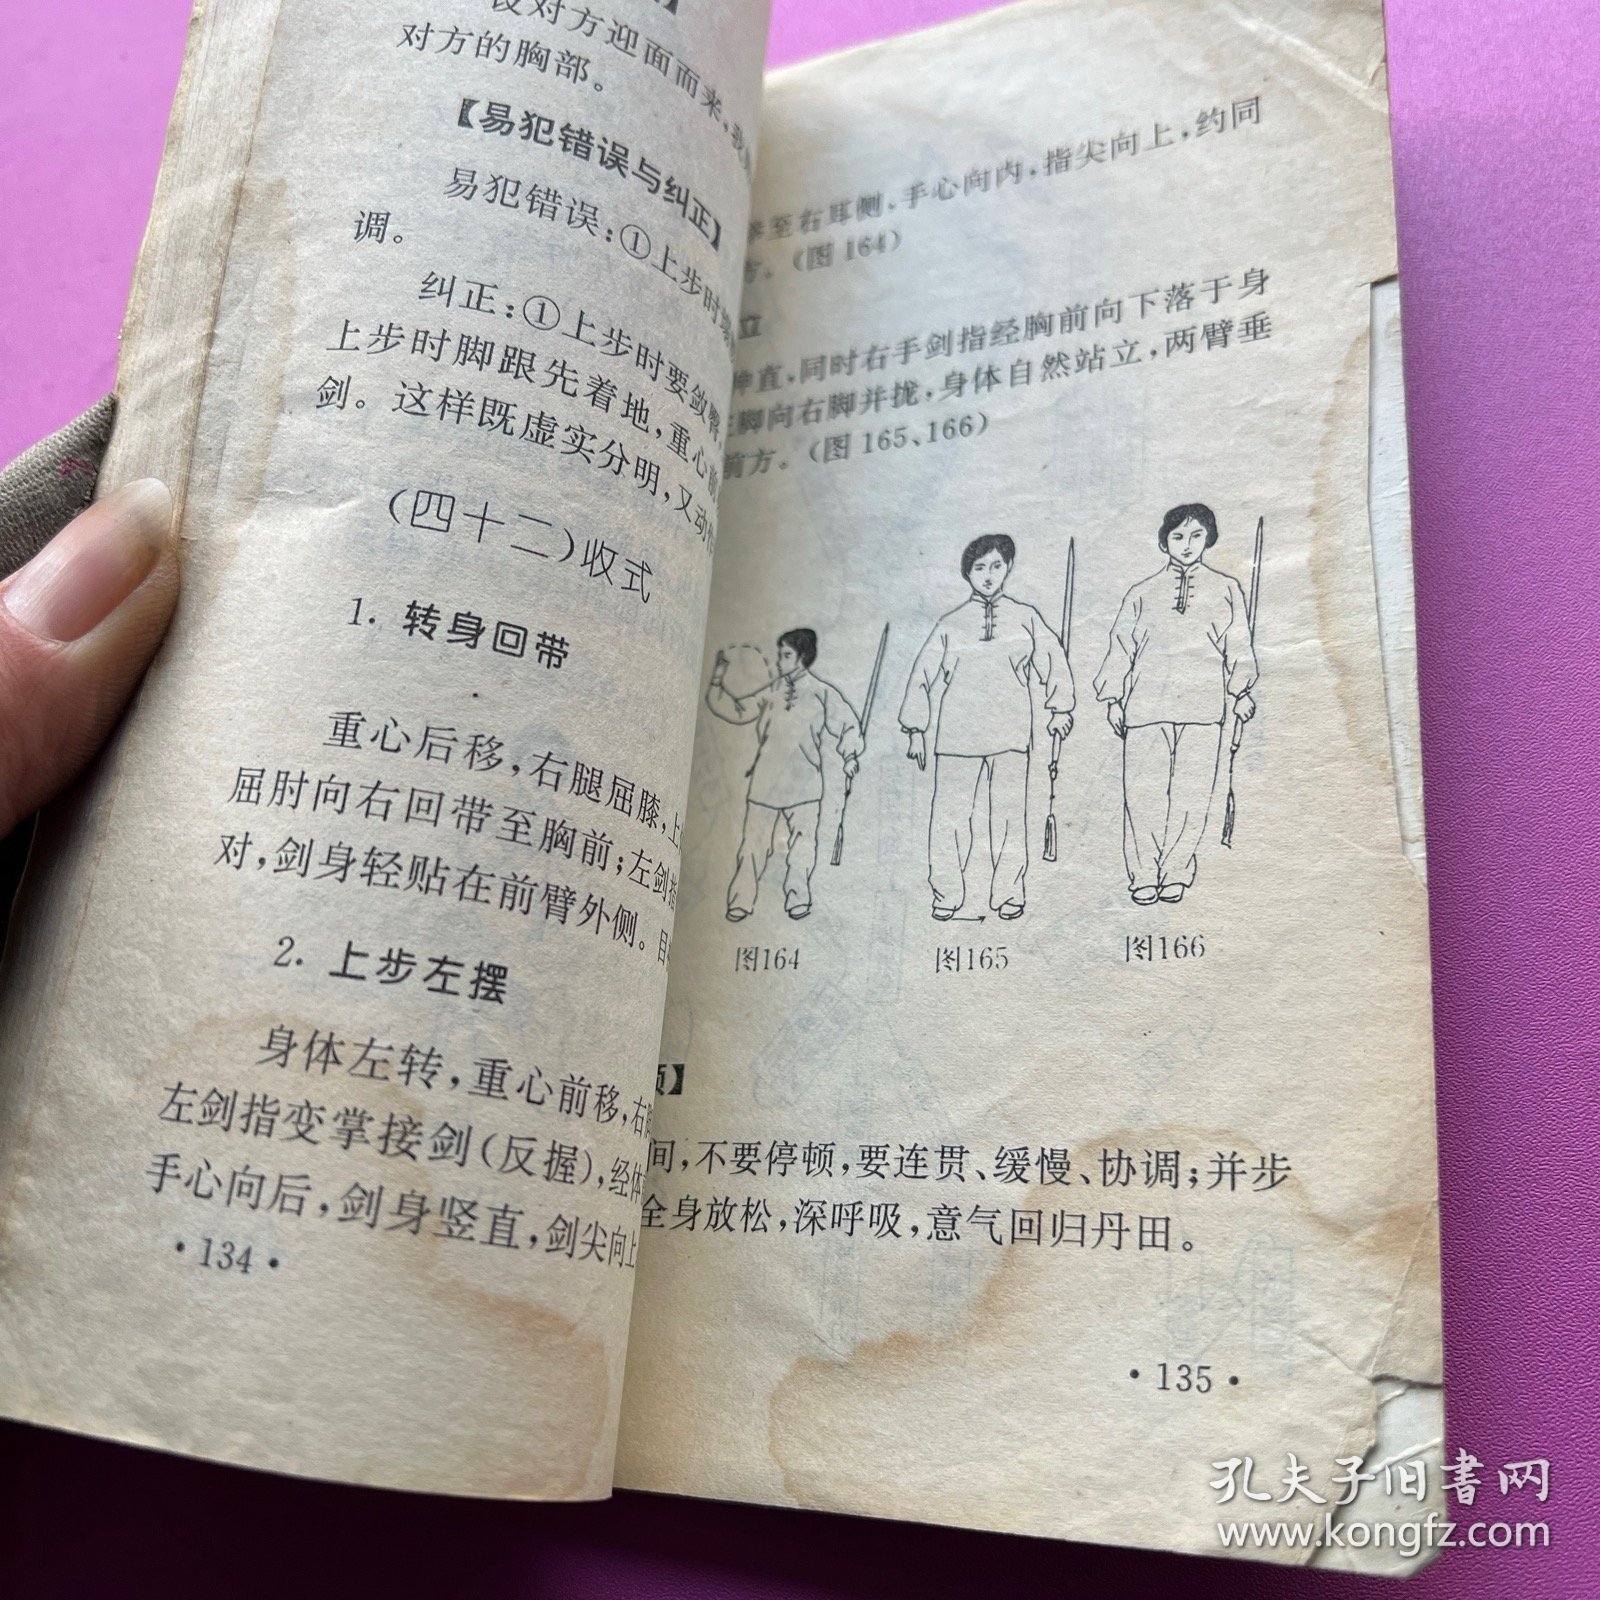 设对方迎面而来，我
对方的胸部。
【易犯错误与纠正】
易犯错误：①上步时
调。
纠正：①上步时要敛臀，
上步时脚跟先着地，重心前
剑。这样既虚实分明，又动
（四十二）收式
1. 转身回带
重心后移，右腿屈膝，上
屈肘向右回带至胸前；左剑指
对，剑身轻贴在前臂外侧。目
2. 上步左摆
身体左转，重心前移，右
左剑指变掌接剑（反握），经体
手心向后，剑身竖直，剑尖向上
·134·
至右耳侧，手心向内，指尖向上，约同
方。（图164）
立
伸直，同时右手剑指经胸前向下落于身
左脚向右脚并拢，身体自然站立，两臂垂
前方。（图165、166）
图164
图165
图166
】
间，不要停顿，要连贯、缓慢、协调；并步
全身放松，深呼吸，意气回归丹田。
·135·
孔夫子旧书网
www.kongfz.com